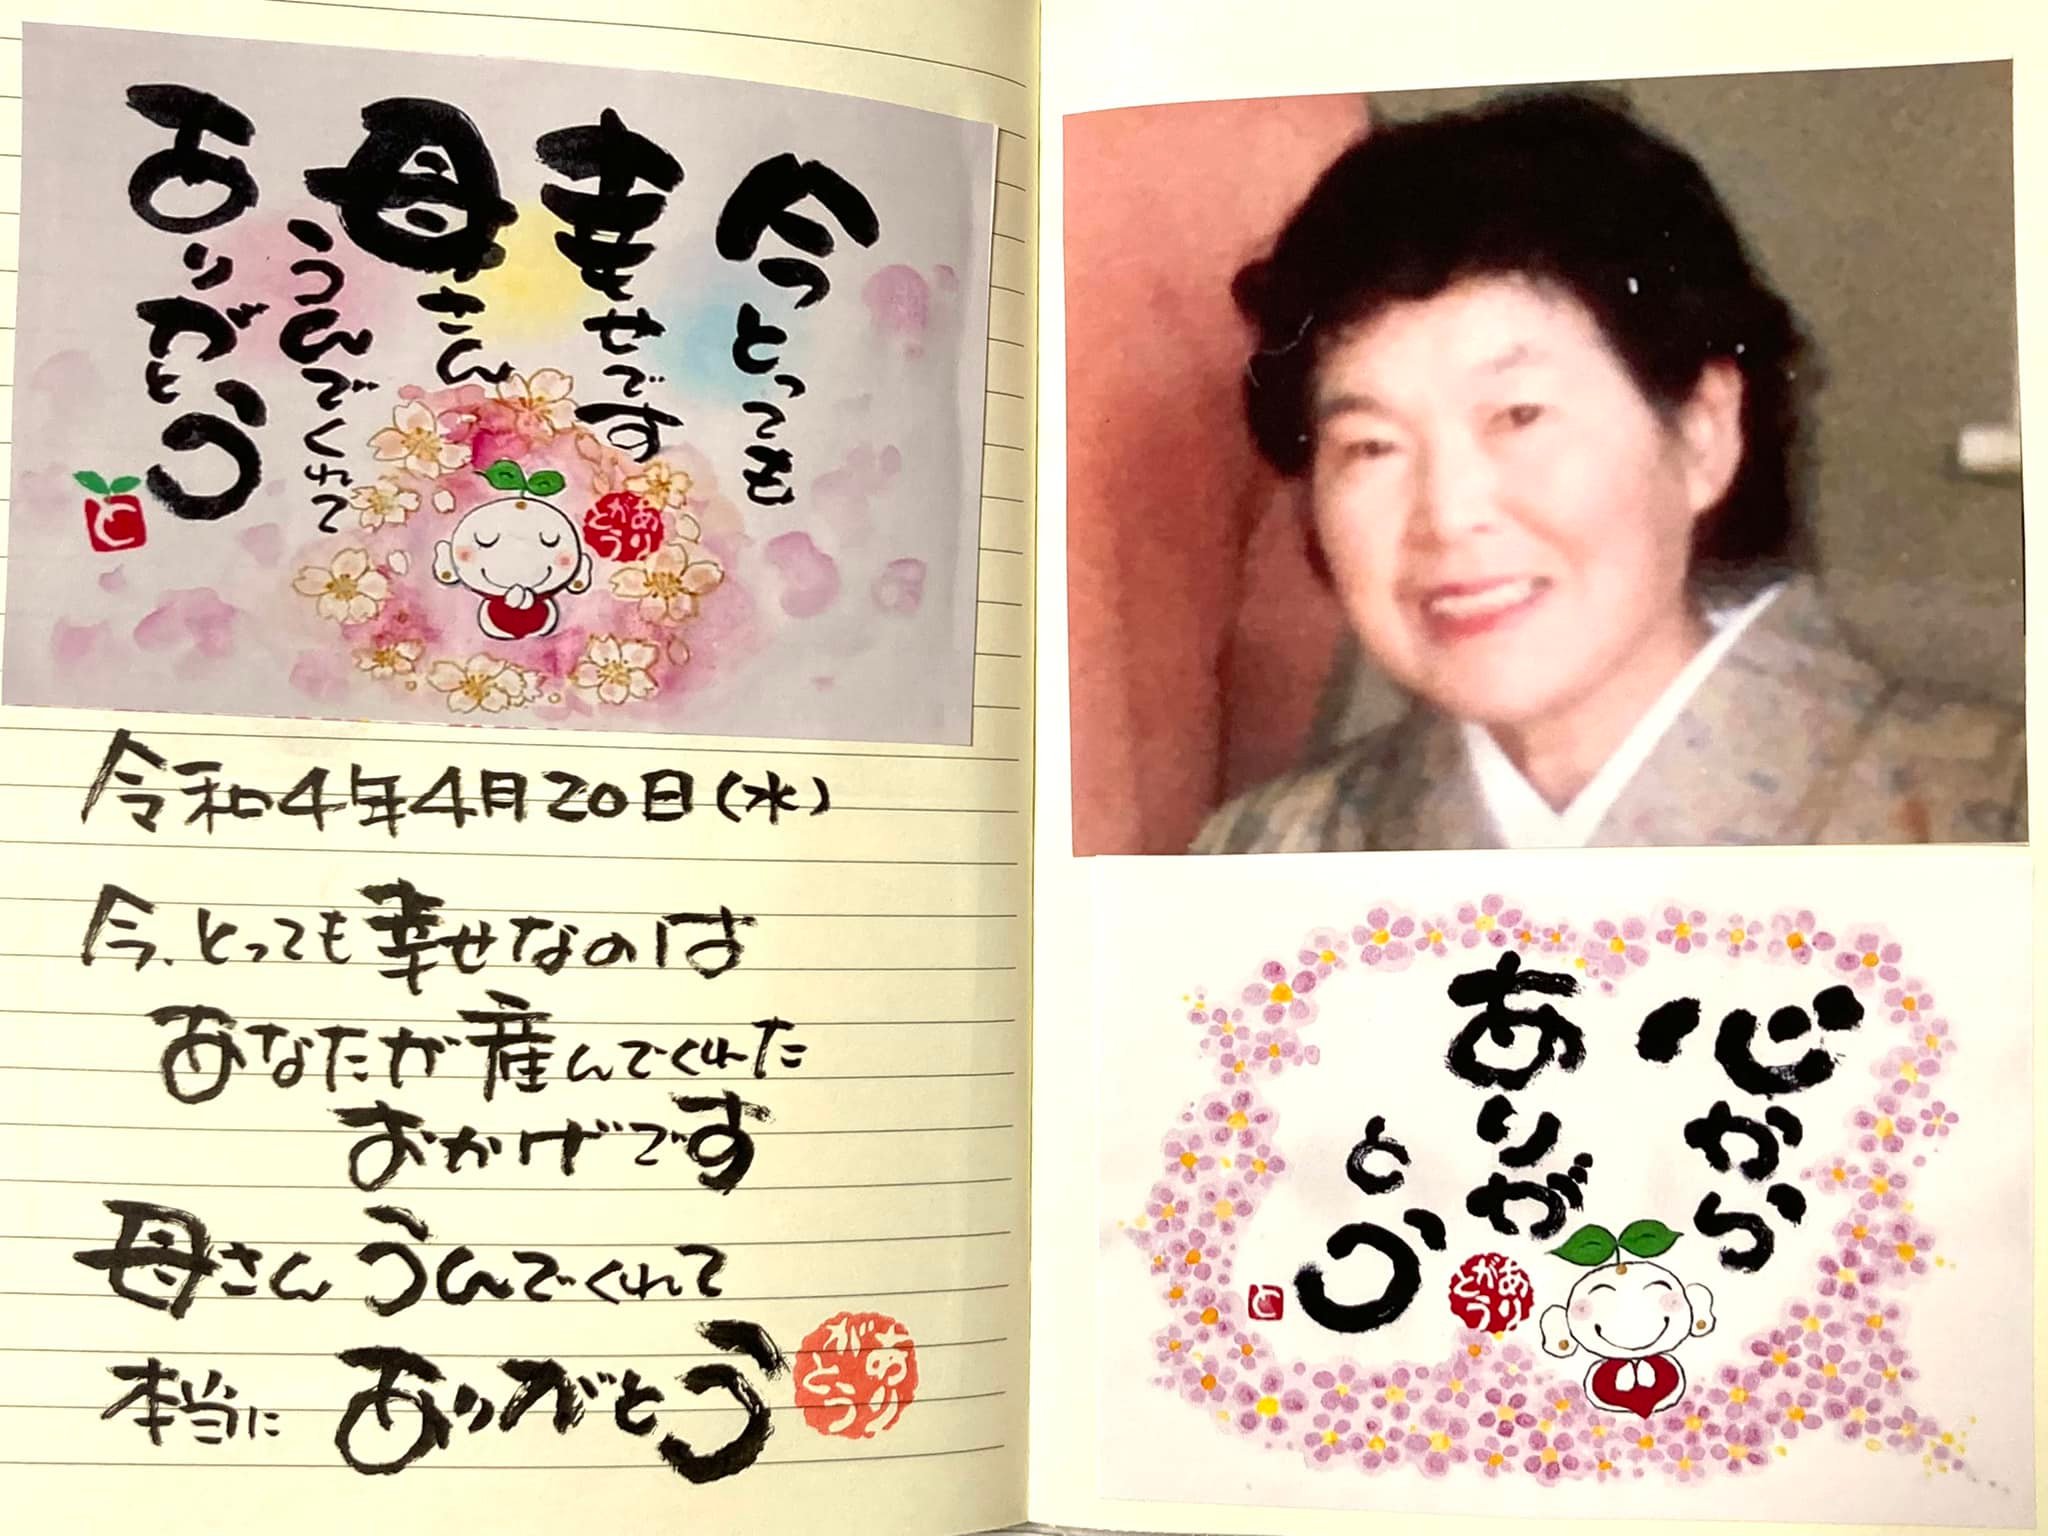 今とっても
幸せです
母さん
うんでくれて
ありがとう
と
ありがとう
令和4年4月20日(水)
今、とっても幸せなのは
あなたが産んでくれた
おかげです
母さんうんでくれて
本当にありがとう
ありがとう
心から
ありが
とう
ありがとう
と